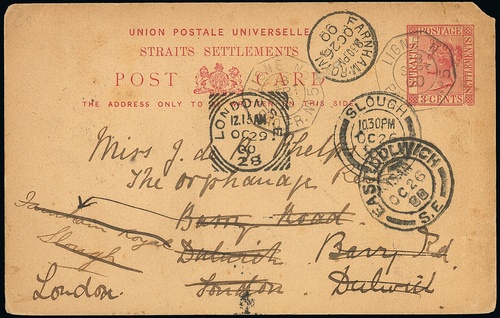 UNION POSTALE UNIVERSELLE
STRAITS SETTLEMENTS
POST CARD
THE ADDRESS ONLY TO THIS SIDE
POSTAGE
STRAITS SETTLEMENTS
3 CENTS
FARNHAM-ROYAL
OC 26
LIGNE N
LONDON S.E.
12.15 AM
OC 29
28
SLOUGH
10.30 PM
OC 26
EAST DULWICH
OC 26
S.E.
Miss J. de
The orphanage
Barry Road
Dulwich
London
Barry Rd
Dulwich
Farnham Royal
Slough
London.